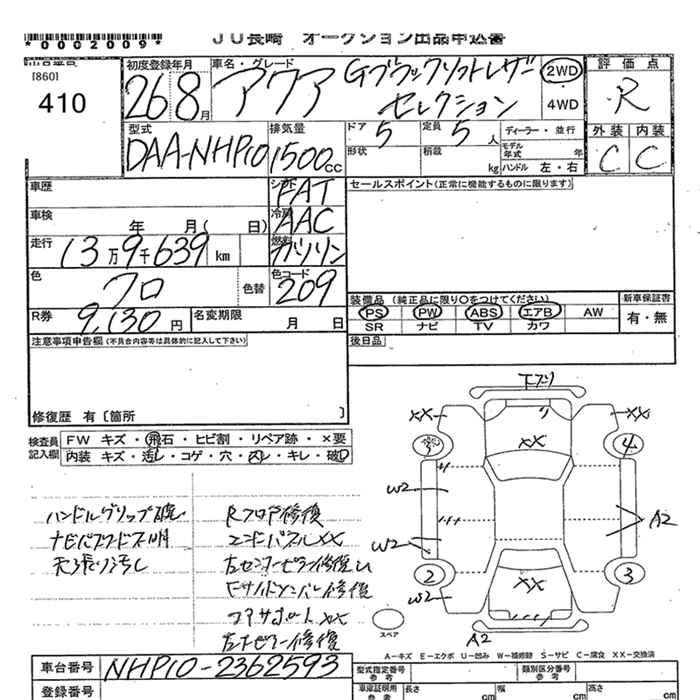 *0002009* JU長崎 オークション出品申込書
[860]
410
初度登録年月 26 8月
車名・グレード アクア Gブラックソフトレザー
セレクション
2WD
4WD
評価点 R
外装 内装
C C
型式 DAA-NHP10
排気量 1500cc
ドア 5
定員 5人
形状
積載 kg
ディーラー・並行
モデル年式 年
ハンドル 左・右
車歴
シフト FAT
車検 年 月( 日)
冷房 AAC
走行 13万9千639km
燃料 ガソリン
色 クロ
色替
色コード 209
R券 9,130円
名変期限 月 日
セールスポイント(正常に機能するものに限ります)
装備品 (純正品に限り○をつけてください)
PS PW ABS エアB AW
SR ナビ TV カワ
新車保証書
有・無
後日品
注意事項申告欄(不具合内容等は具体的に記入して下さい)
修復歴 有〔箇所 〕
検査員記入欄
FW キズ・飛石・ヒビ割・リペア跡・×要
内装 キズ・汚レ・コゲ・穴・スレ・キレ・破レ
ハンドルグリップ破
天張り汚レ
Rフロア修復
エンドパネルXX
左センターピラー修復
Fサイドメンバー修復
コアサポートXX
XX XX
4
XX
W2
A2
W2
2 3
W2
XX
スペア
A2
A-キズ E-エクボ U-凹み W-補修跡 S-サビ C-腐食 XX-交換済
車台番号 NHP10-2362593
登録番号
型式指定番号
類別区分番号
車庫証明用参考
長さ cm
幅 cm
高さ cm